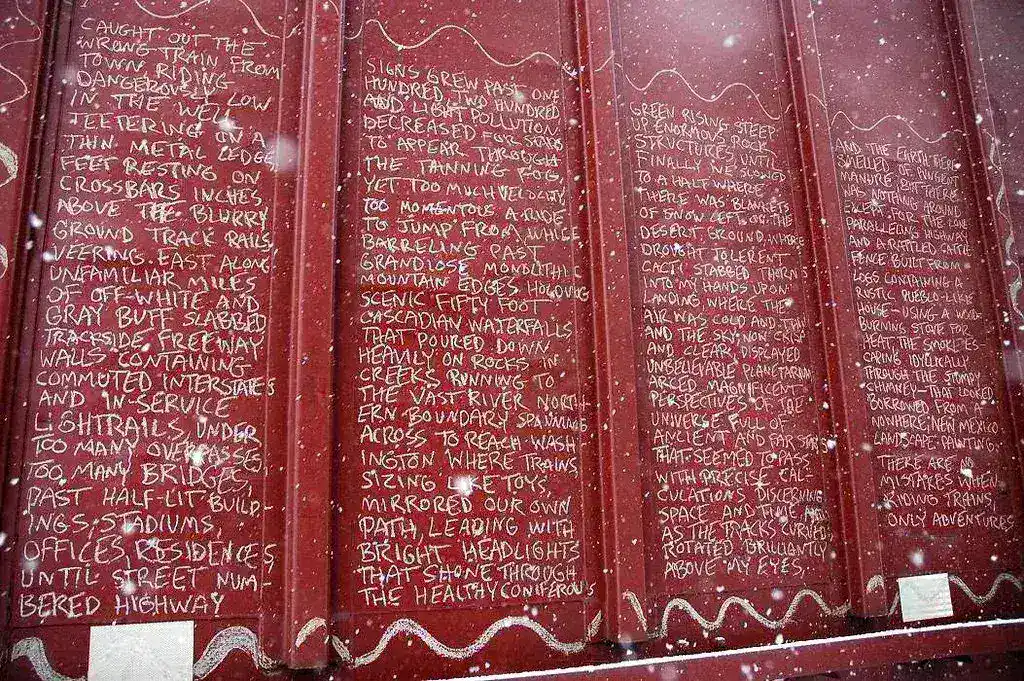 CAUGHT OUT THE
WRONG TRAIN FROM
TOWN RIDING
DANGEROUSLY
IN THE WELL, LOW
TEETERING ON A
THIN METAL LEDGE
FEET RESTING ON
CROSSBARS INCHES
ABOVE THE BLURRY
GROUND TRACK RAILS,
VEERING EAST ALONG
UNFAMILIAR MILES
OF OFF-WHITE AND
GRAY BUFF SLABBED
TRACKSIDE FREEWAY
WALLS CONTAINING
COMMUTED INTERSTATES
AND IN-SERVICE
LIGHTRAILS, UNDER
TOO MANY OVERPASSES,
TOO MANY BRIDGES,
PAST HALF-LIT BUILD-
INGS, STADIUMS,
OFFICES, RESIDENCES,
UNTIL STREET NUM-
BERED HIGHWAY
SIGNS GREW PAST ONE
HUNDRED, TWO HUNDRED
AND LIGHT POLLUTION
DECREASED FOR STARS
TO APPEAR THROUGH
THE TANNING FOG
YET TOO MUCH VELOCITY
TOO MOMENTOUS A RIDE
TO JUMP FROM, WHILE
BARRELING PAST
GRANDIOSE MONOLITHIC
MOUNTAIN EDGES HOLDING
SCENIC FIFTY FOOT
CASCADIAN WATERFALLS
THAT POURED DOWN
HEAVILY ON ROCKS IN
CREEKS RUNNING TO
THE VAST RIVER NORTH-
ERN BOUNDARY SPANNING
ACROSS TO REACH WASH
INGTON WHERE TRAINS,
SIZING LIKE TOYS,
MIRRORED OUR OWN
PATH, LEADING WITH
BRIGHT HEADLIGHTS
THAT SHONE THROUGH
THE HEALTHY CONIFEROUS
GREEN RISING STEEP
UP ENORMOUS ROCK
STRUCTURES, UNTIL
FINALLY WE SLOWED
TO A HALT WHERE
THERE WAS BLANKETS
OF SNOW LEFT ON THE
DESERT GROUND, WHERE
DROUGHT TOLERENT
CACTI STABBED THORNS
INTO MY HANDS UPON
LANDING, WHERE THE
AIR WAS COLD AND THIN
AND THE SKY, NOW CRISP
AND CLEAR, DISPLAYED
UNBELIEVABLE PLANETARIUM
ARCED MAGNIFICENT
PERSPECTIVES OF THE
UNIVERSE FULL OF
ANCIENT AND FAR STARS
THAT SEEMED TO PASS
WITH PRECISE CAL-
CULATIONS DISCERNING
SPACE AND TIME, AND
AS THE TRACKS CURVED,
ROTATED BRILLIANTLY
ABOVE MY EYES,
AND THE EARTH THERE
SMELLED OF PUNGENT
MANURE, BUT THERE
WAS NOTHING AROUND
EXCEPT FOR THE LONE
PARALLELING HIGHWAY
AND A RATTLED CATTLE
FENCE BUILT FROM
LOGS CONTAINING A
RUSTIC PUEBLO-LIKE
HOUSE—USING A WOOD
BURNING STOVE FOR
HEAT, THE SMOKE ES-
CAPING IDYLLICALLY
THROUGH THE STUMPY
CHIMNEY—THAT LOOKED
BORROWED FROM A
NOWHERE, NEW MEXICO
LANDSCAPE PAINTING.
THERE ARE NO
MISTAKES WHEN
RIDING TRAINS,
ONLY ADVENTURES